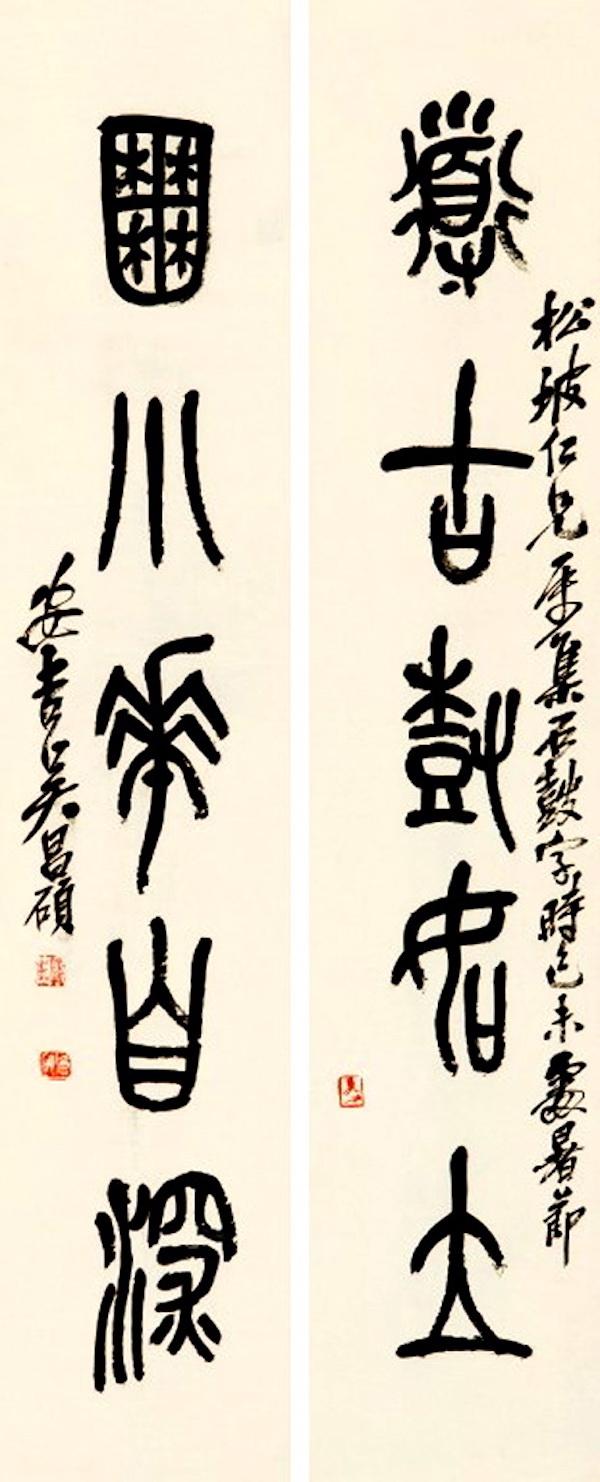 松坡仁兄屬集石鼓字時己未處暑節
道古樹如立
囿小華自深
安吉吳昌碩